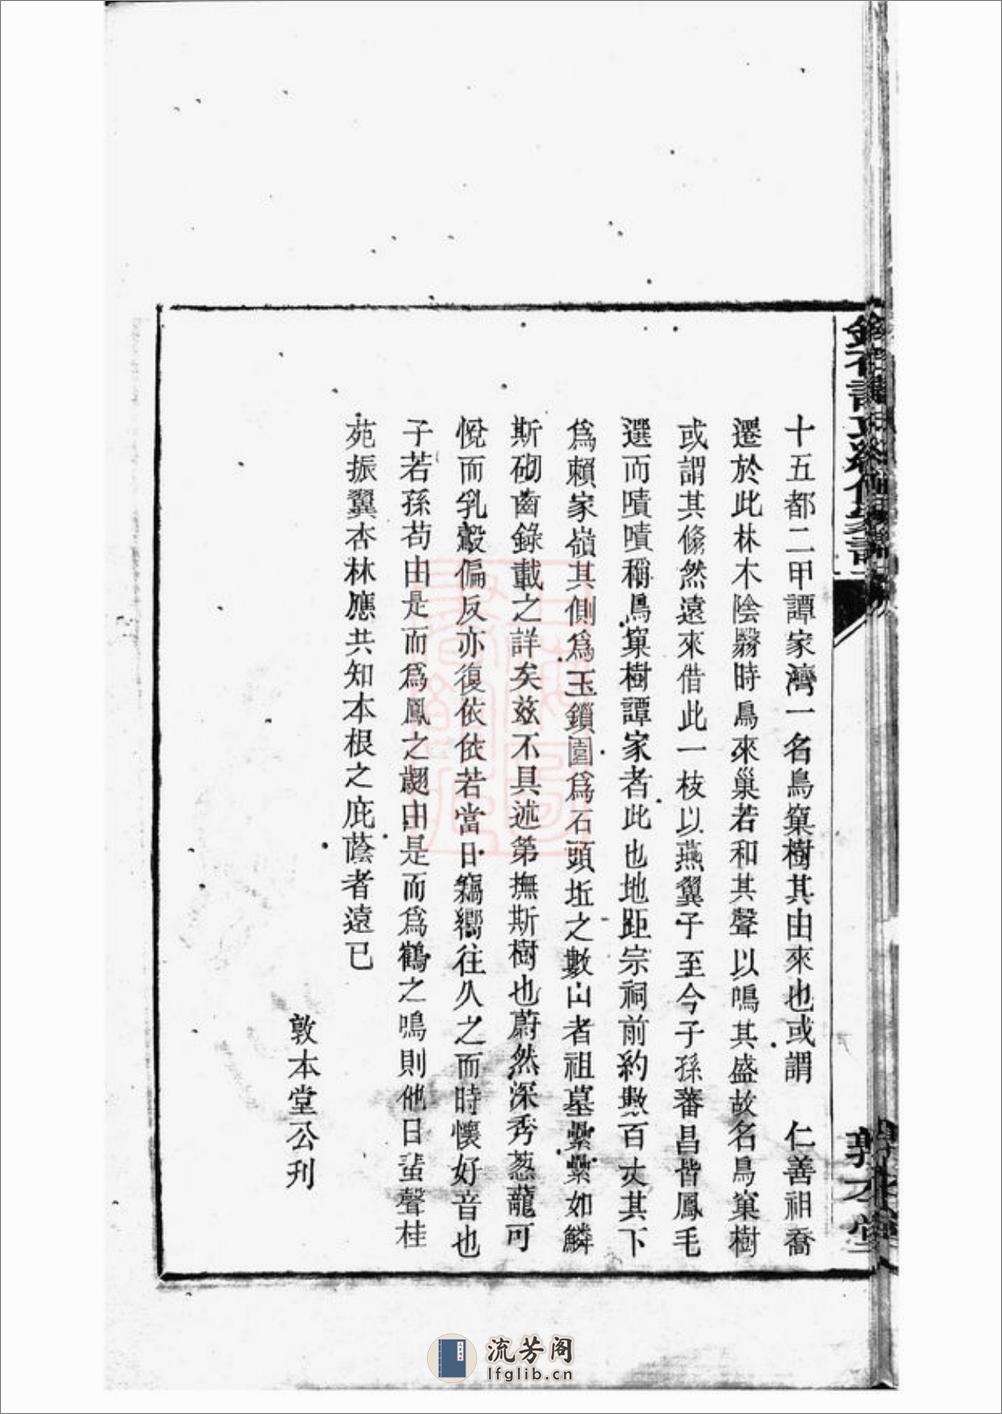 十五都二甲譚家灣一名鳥窠樹其由來也或謂　仁善祖喬
遷於此林木陰翳時鳥來巢若和其聲以鳴其盛故名鳥窠樹
或謂其翛然遠來借此一枝以燕翼子至今子孫蕃昌皆鳳毛
選而嘖嘖稱鳥窠樹譚家者此也地距宗祠前約數百丈其下
爲賴家嶺其側爲玉鎖圍爲石頭坵之數山者祖墓纍纍如鱗
斯砌齒錄載之詳矣茲不具述第撫斯樹也蔚然深秀葱蘢可
悅而乳鷇偏反亦復依依若當日竊嚮往久之而時懷好音也
子若孫苟由是而爲鳳之翽由是而爲鶴之鳴則他日蜚聲桂
苑振翼杏林應共知本根之庇蔭者遠已
敦本堂公刊
敦本堂
流芳阁
lfglib.cn